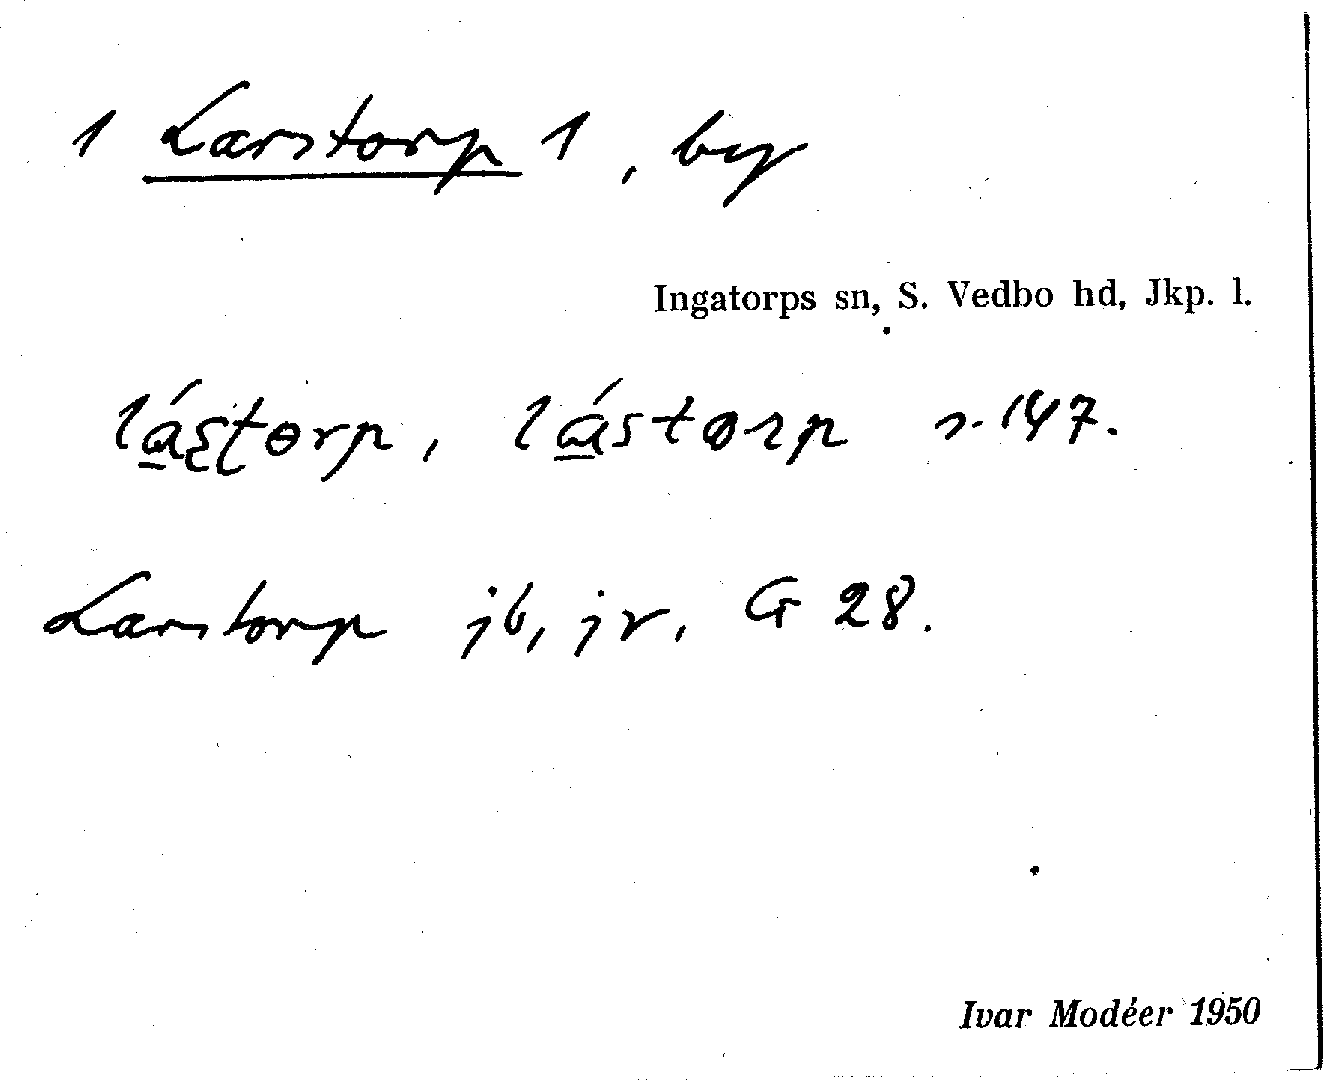 1 Larstorp 1, by
Ingatorps sn, S. Vedbo hd, Jkp. l.
lá̱ʂʈɵrp, lá̱støɿp s. 147.
Larstorp jb, jr, G 28.
Ivar Modéer 1950